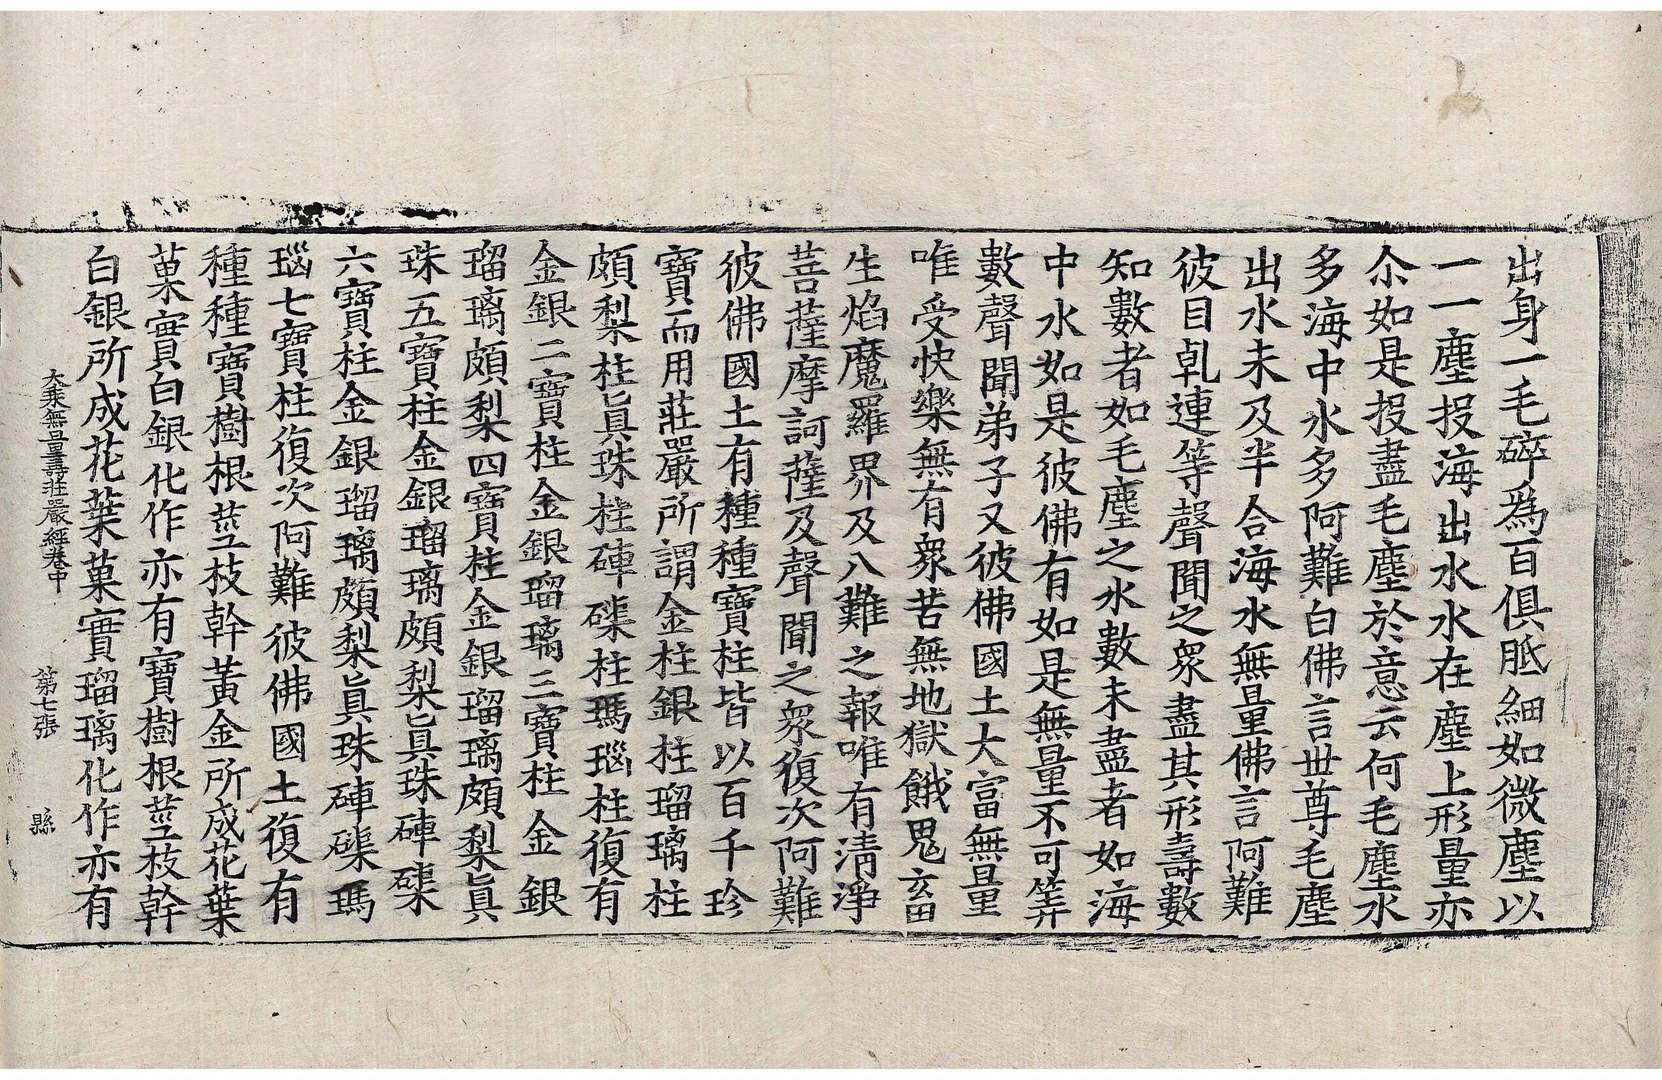 出身一毛碎爲百俱胝細如微塵以
一一塵投海出水水在塵上形量亦
尒如是投盡毛塵於意云何毛塵水
多海中水多阿難白佛言世尊毛塵
出水未及半合海水無量佛言阿難
彼目乹連等聲聞之衆盡其形壽數
知數者如毛塵之水數未盡者如海
中水如是彼佛有如是無量不可筭
數聲聞弟子又彼佛國土大富無量
唯受快樂無有衆苦無地獄餓鬼畜
生焰魔羅界及八難之報唯有清淨
菩薩摩訶薩及聲聞之衆復次阿難
彼佛國土有種種寶柱皆以百千珍
寶而用莊嚴所謂金柱銀柱瑠璃柱
頗梨柱眞珠柱硨磲柱瑪瑙柱復有
金銀二寶柱金銀瑠璃三寶柱金銀
瑠璃頗梨四寶柱金銀瑠璃頗梨眞
珠五寶柱金銀瑠璃頗梨眞珠硨磲
六寶柱金銀瑠璃頗梨眞珠硨磲瑪
瑙七寶柱復次阿難彼佛國土復有
種種寶樹根莖枝幹黃金所成花葉
菓實白銀化作亦有寶樹根莖枝幹
白銀所成花葉菓實瑠璃化作亦有
大乘無量壽莊嚴經卷中 第七張 縣